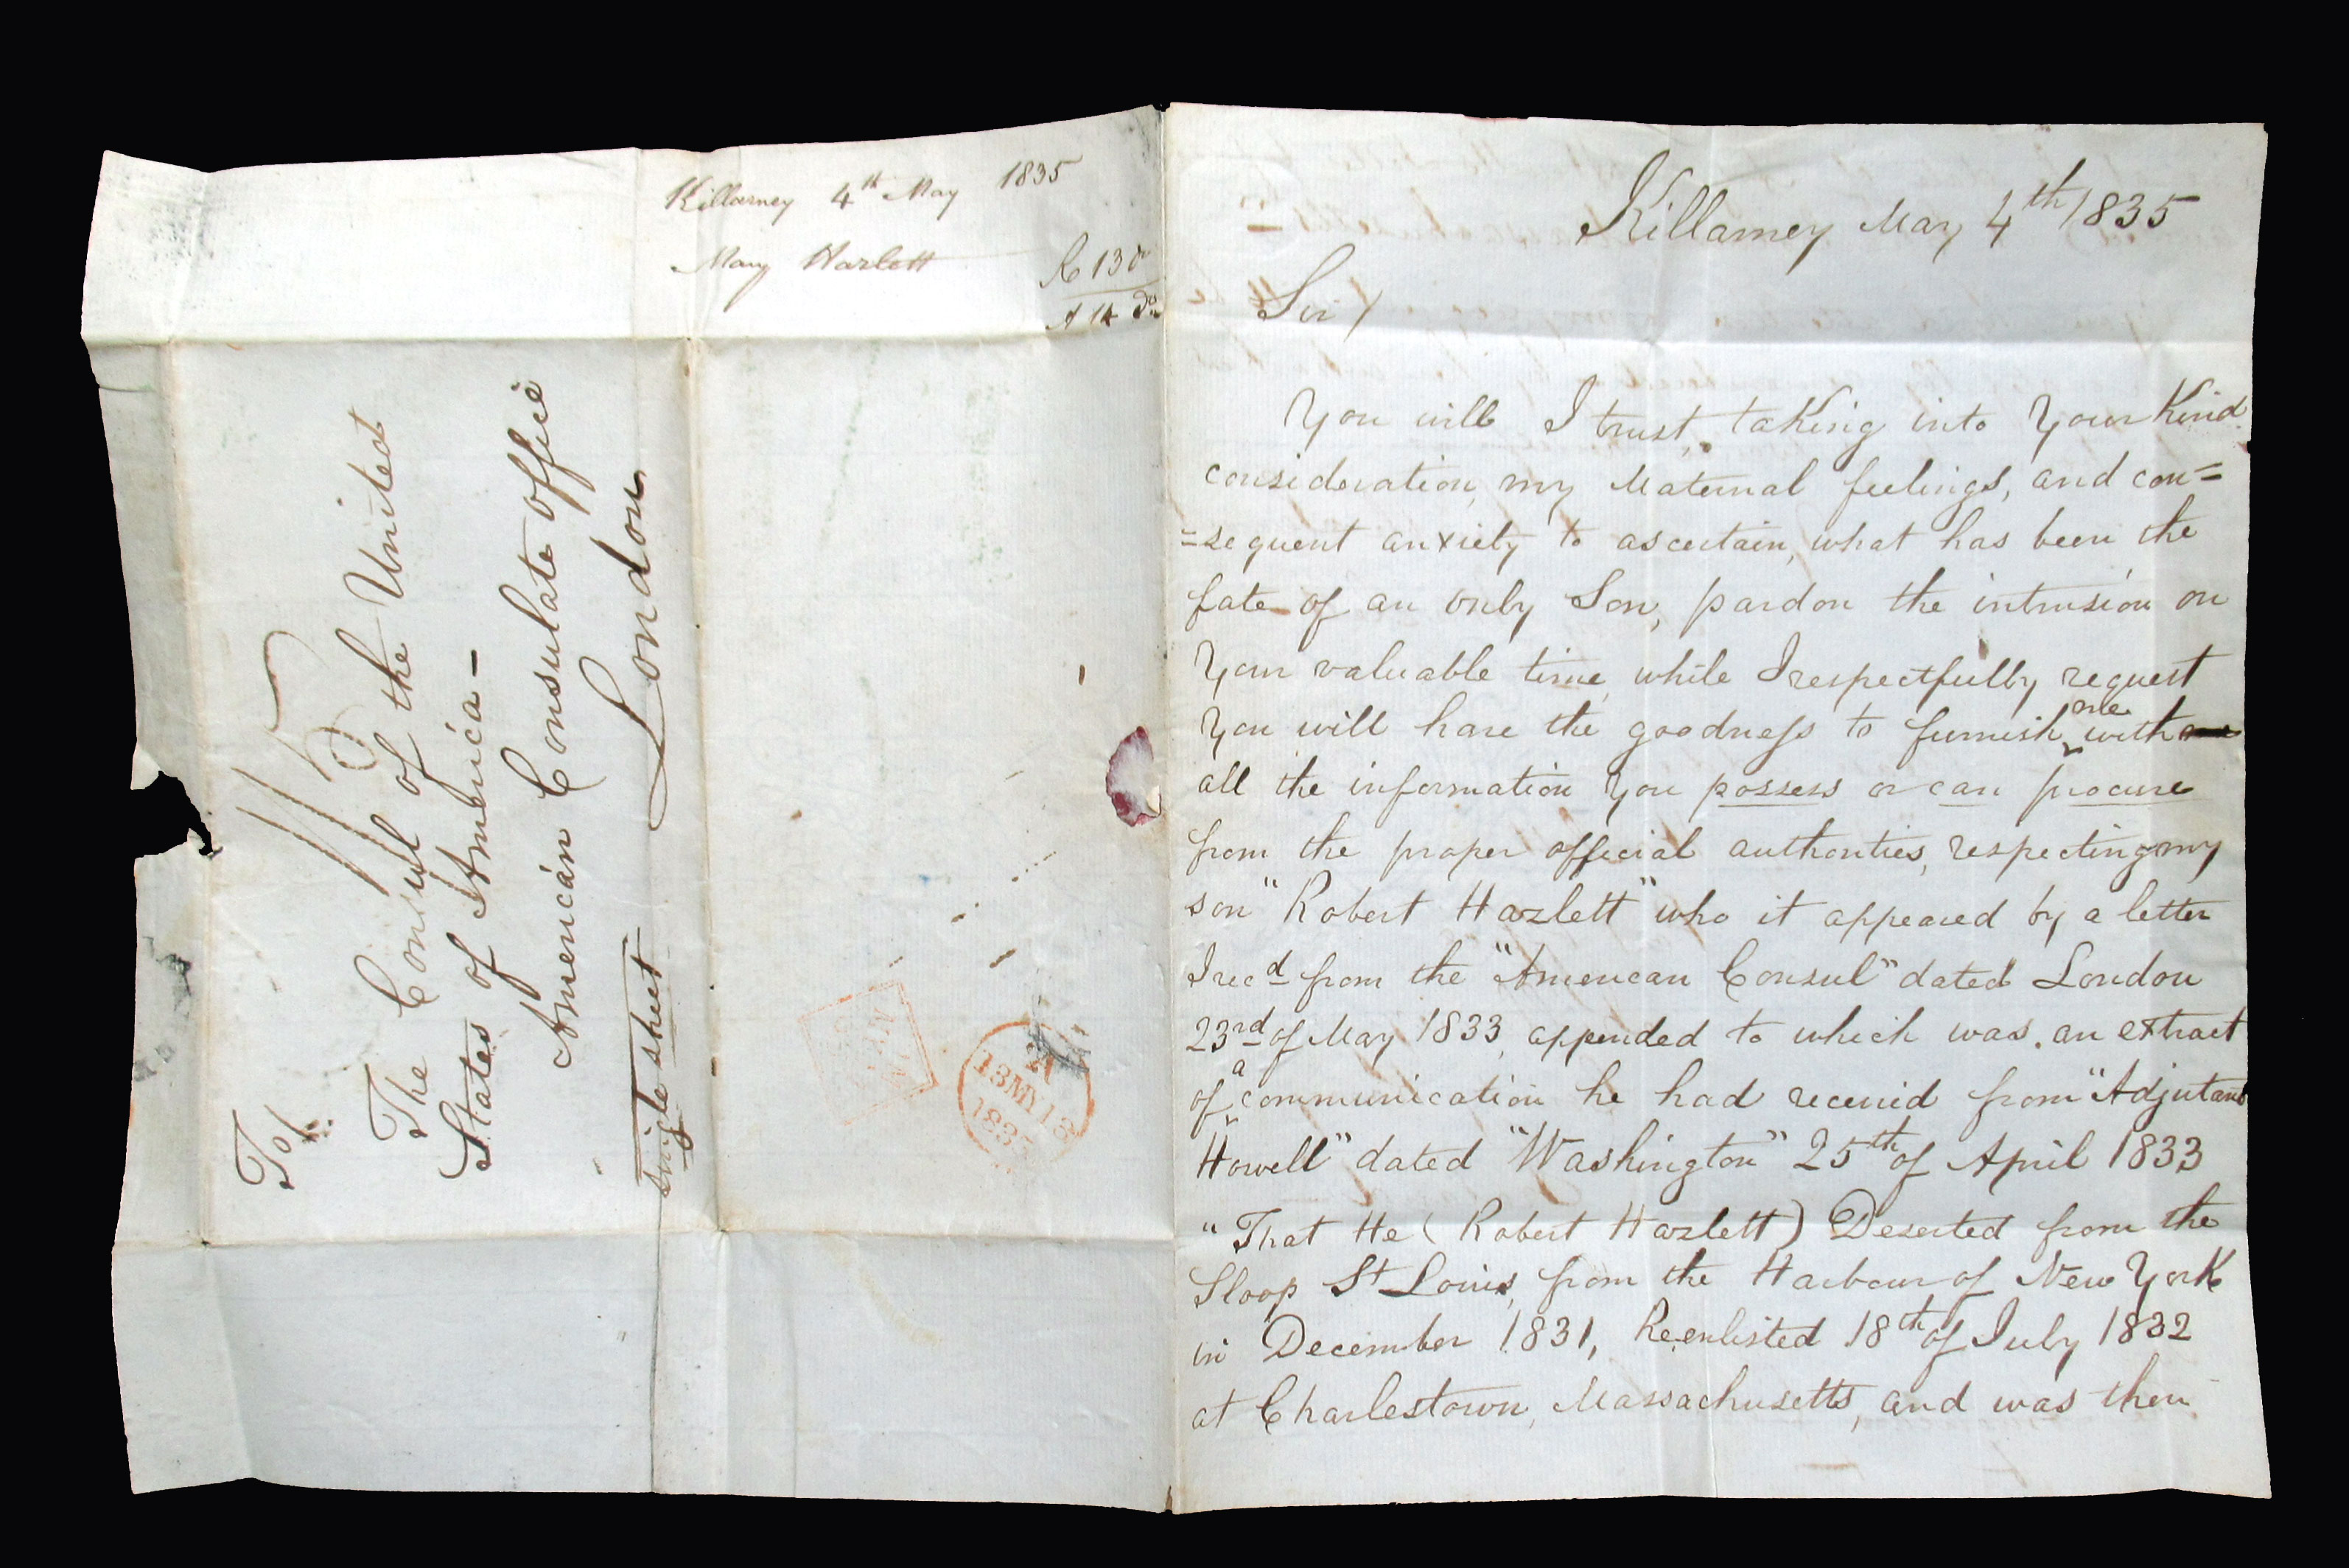 Killarney 4th May 1835
Mary Hazlett
A 14 do
To/
The Consul of the United
States of America —
American Consulate office
London
Single sheet
A
13MY13
1835
Killarney May 4th 1835
Sir/
You will I trust, taking into Your Kind
consideration, my Maternal feelings, and con=
=sequent anxiety to ascertain, what has been the
fate of an only Son, pardon the intrusion on
Your valuable time, while I respectfully request
You will have the goodness to furnish me with
all the information You possess or can procure
from the proper official authorities, respecting my
son "Robert Hazlett" who it appeared by a letter
I recd from the "American Consul" dated London
23rd of May 1833, appended to which was an extract
of a communication he had received from "Adjutant
Howell" dated "Washington" 25th of April 1833
"That He (Robert Hazlett) Deserted from the
Sloop St Louis, from the Harbour of New York
in December 1831, Reenlisted 18th of July 1832
at Charlestown, Massachusetts, and was then